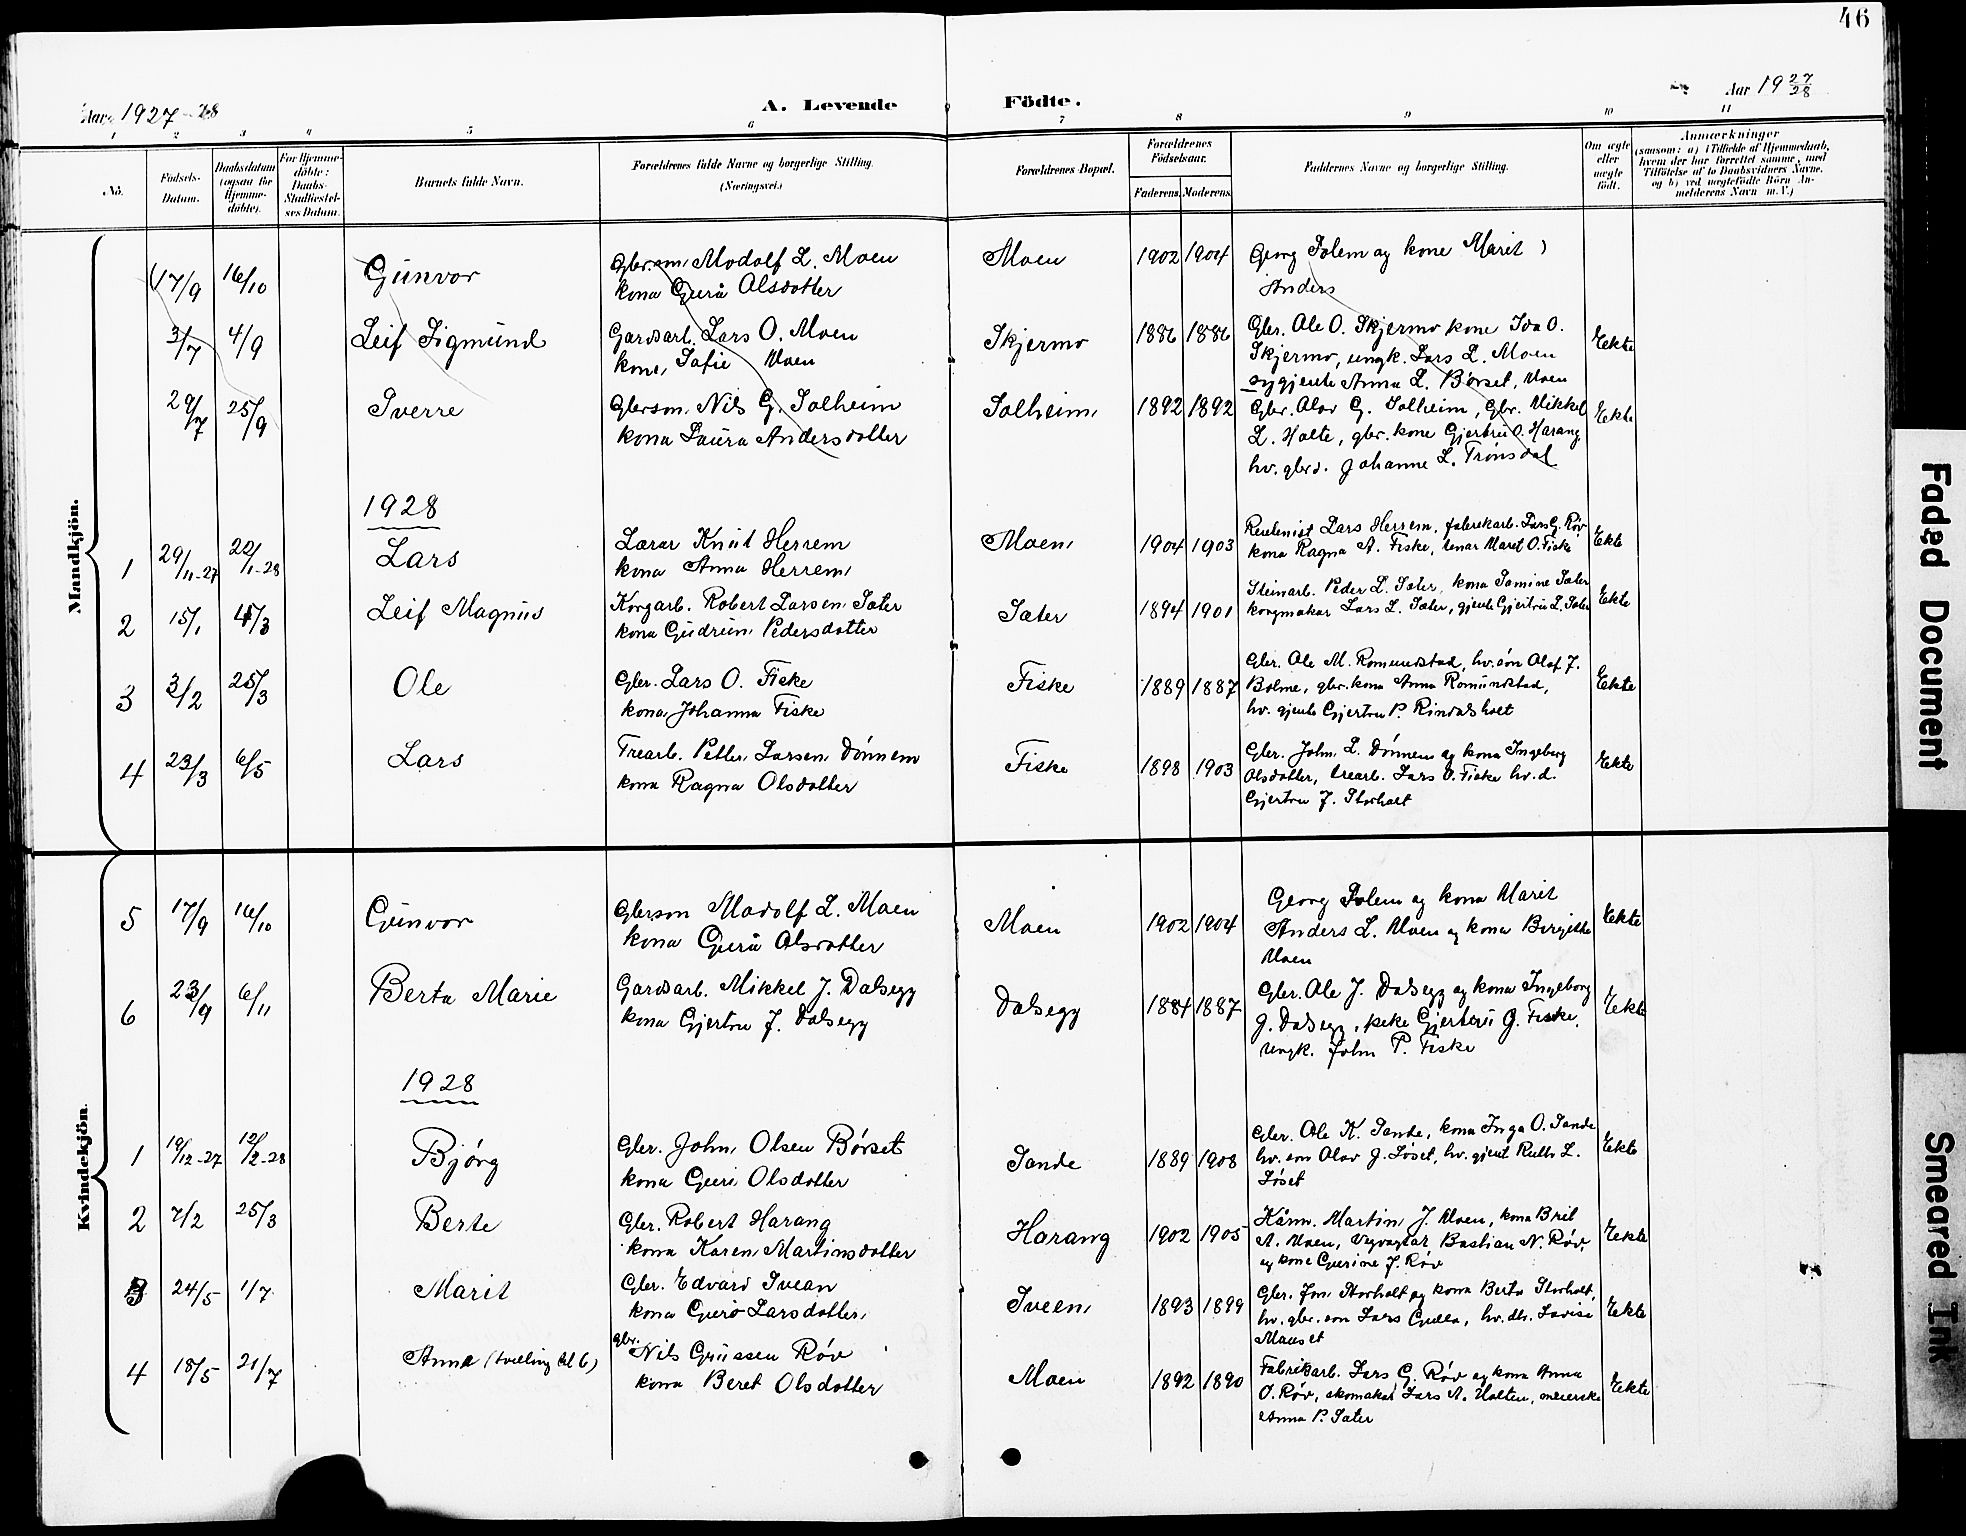 46
Aar 1927-28
A. Levende Födte.
Aar 19 27/28
1 2 3 4 5 6 7 8 9 10 11
No.
Födsels-Datum.
Daabsdatum (ogsaa for Hjemme-döbte).
For Hjemme-döbte: Daabs-Stadfæstel-ses Datum.
Barnets fulde Navn.
Forældrenes fulde Navne og borgerlige Stilling. (Næringsvei.)
Forældrenes Bopæl.
Forældrenes Födselsaar.
Faderens. Moderens.
Faddernes Navne og borgerlige Stilling.
Om ægte eller uægte födt.
Anmærkninger
(saasom: a) i Tilfælde af Hjemmedaab, hvem der har forrettet samme, med Tilföielse af to Daabsvidners Navne, og b) ved uægtefödte Börn An-melderens Navn m. V.)
Mandkjön.
17/9 16/10 Gunvor
Modolf L. Moen
kona Gurå Olsdotter
Moen 1902 1904
Georg Solem og kone Marit
Anders
3/7 4/9 Leif Sigmund
Gardsarb. Lars O. Moen
kone, Sofie Moen
Skjermo 1886 1886
Gbr. Ole O. Skjermo kone Ida O.
Skjermo, ungk. Lars L. Moen
sygjente Anna L. Børset, Moen
Ekte
29/7 25/9 Sverre
Gbrson. Nils G. Solheim
kona Laura Andersdotter
Solheim 1892 1892
Gbr. Olav G. Solheim, Gbr. Mikkel
L. Holte, gbr. kone Gjertru O. Harang
hv. gbrd. Johanne L. Trønsdal
Ekte
1928
1 29/11-27 22/1-28 Lars
Lærar Knut Herrem
kona Anna Herrem
Moen 1904 1903
Lars Herrem, fabrikarb. Lars G. Røv
kona Ragna A. Fiske, Maret O. Fiske
Ekte
2 15/1 4/3 Leif Magnus
Korgarb. Robert Larsen Sæter
kona Gudrun Pedersdotter
Sæter 1894 1901
Steinarb. Peder L. Sæter, kona Tomine Sæter
korgmakar Lars L. Sæter, gjente Gjertru L. Sæter
Ekte
3 3/2 25/3 Ole
Gbr. Lars O. Fiske
kona Johanna Fiske
Fiske 1889 1887
Gbr. Ole M. Romundstad, hv. søn Olaf J.
Bolme, gbr. kona Anna Romundstad,
hv. gjente Gjertru P. Rindalsholt
Ekte
4 23/3 6/5 Lars
Trearb. Petter Larsen Dønnem
kona Ragna Olsdotter
Fiske 1898 1903
Gbr. John L. Dønnem og kona Ingeborg
Olsdotter, trearb. Lars O. Fiske hv. d.
Gjertru J. Storholt
Ekte
Kvindekjön.
5 17/9 16/10 Gunvor
Gbrson Modolf L. Moen
kona Gurå Olsdotter
Moen 1902 1904
Georg Solem og kona Marit
Anders L. Moen og kona Birgitte
Moen
Ekte
6 23/9 6/11 Berta Marie
Gardsarb. Mikkel J. Dalsegg
kona Gjertru J. Dalsegg
Dalsegg 1884 1887
Gbr. Ole J. Dalsegg og kona Ingeborg
J. Dalsegg, Gjertru G. Fiske,
Ungk. John P. Fiske
Ekte
1928
1 19/12-27 12/2-28 Bjørg
Gbr. John Olsen Børset
kona Guri Olsdotter
Sande 1889 1908
Gbr. Ole K. Sande, kona Inga O. Sande
hv. søn Olav J. Løset, hv. gjent Ruth L.
Løset
Ekte
2 7/2 25/3 Berte
Gbr. Robert Harang
kona Karen Martinsdotter
Harang 1902 1905
Kårm. Martin J. Moen, kona Brit
A. Moen, Vegvagtar Bastian N. Røv,
og kone Gurine J. Røv
Ekte
3 24/5 1/7 Marit
Gbr. Edvard Sveen
kona Guro Larsdotter
Sveen 1893 1899
Gbr. Jon Storholt og kona Berta Storholt,
hv. gbr. søn Lars Gulla, hv. dtr. Lovise
Mauset
Ekte
4 18/5 21/7 Anna (tvilling til 6)
gbr. Nils Gudssen Røv
kona Beret Olsdotter
Moen 1892 1890
Fabrikarb. Lars G. Røv og kona Anna
O. Røv, skomakar Lars A. Holten, meierske
Anna P. Sæter
Ekte
Faded Document
Smeared Ink